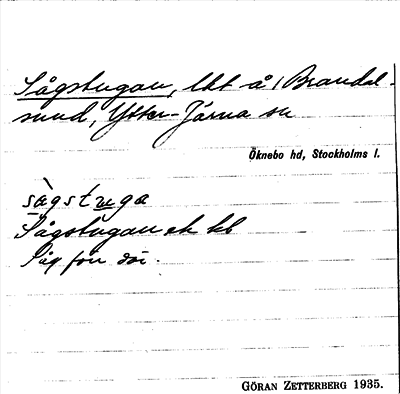 Sågstugan, lht å/ Brandal-
sund, Ytter-Järna sn
Öknebo hd, Stockholms l.
sàgstuga
Sågstugan ek kb
Såg förr där.
GÖRAN ZETTERBERG 1935.